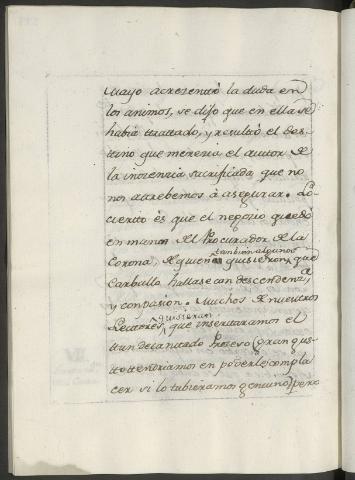 Mayo acresentó la duda en
los animos, se dijo que en ella se
habia tratado, y resultó el des-
tino que merecia el autor de
la inocencia sacrificada, que no
nos atrebemos à asegurar. Lo
cierto és que el negocio quedó
en manos del Procurador de la
Corona, de quien tambien algunos quisieron, que
Carbullo hallase condescendenza
y conpasion. Muchos de nuestros
Lectores, quisieran que insertaramos el
tan decantado Proceso (gran gus-
to tendriamos en poderle compla
cer si lo tubieramos genuino) pero